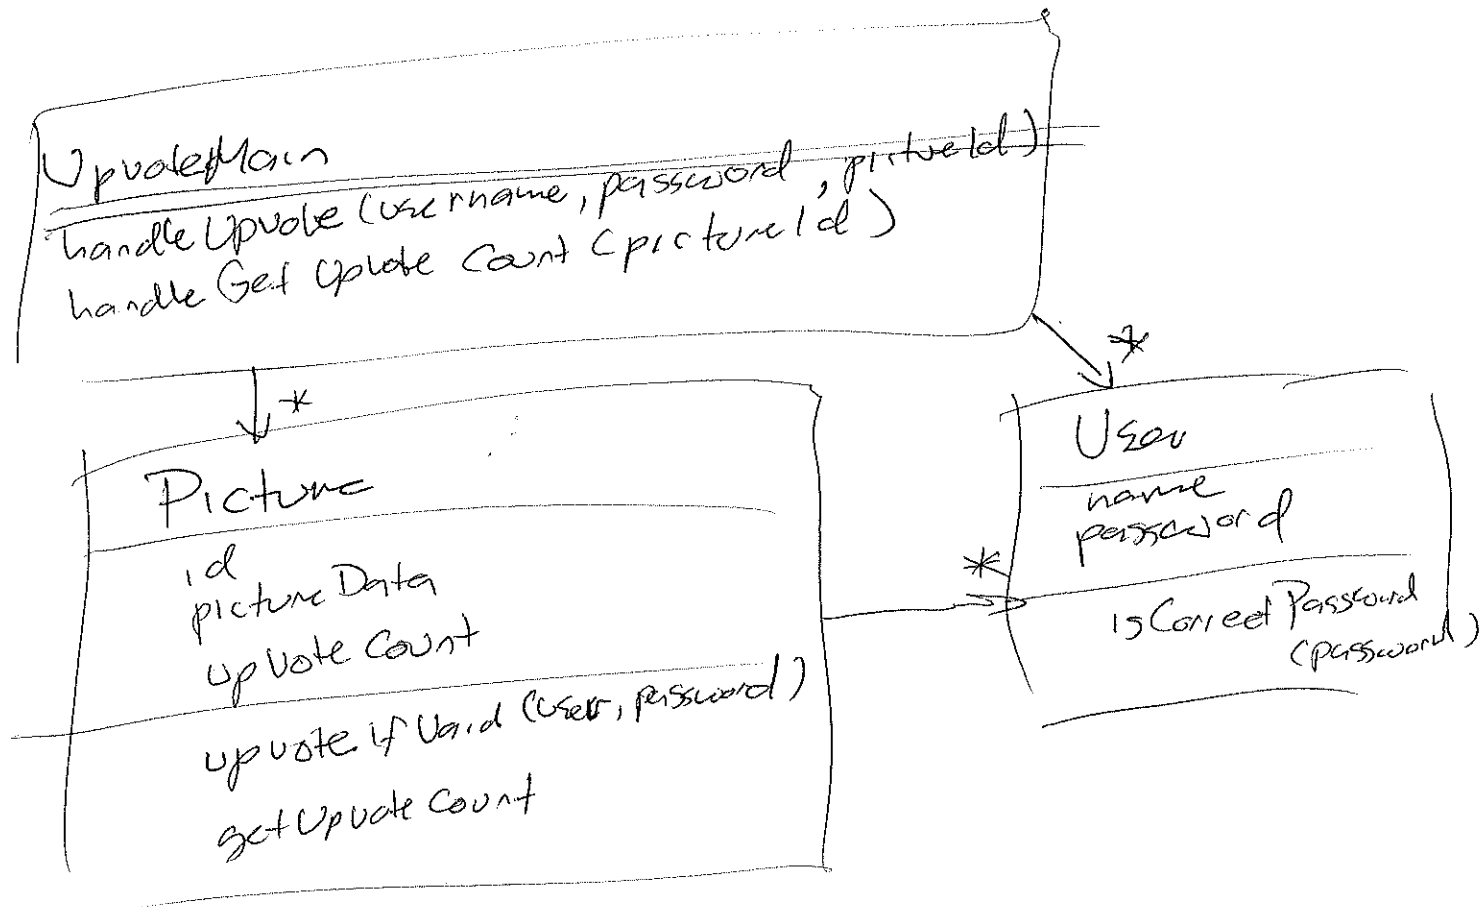 UpvoteMain
handleUpvote(username, password, pictureId)
handleGetUpvoteCount(pictureId)
*
*
Picture
id
pictureData
upvoteCount
upvoteifValid(user, password)
getUpvoteCount
User
name
password
*
isCorrectPassword
(password)